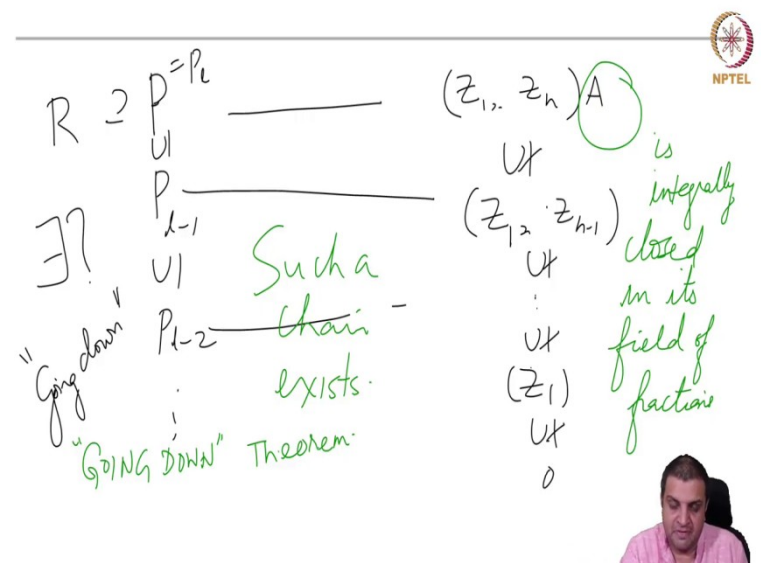 NPTEL
R ⊇ P = P_l (Z_1, .. Z_n) A
U| U\
P_{d-1} (Z_1, .. Z_{n-1})
∃? U| U\
⋮
P_{d-2} U\
(Z_1)
⋮ U\
0
"Going down"
Such a
chain
exists.
"GOING DOWN" Theorem.
is
integrally
closed
in its
field of
fractions